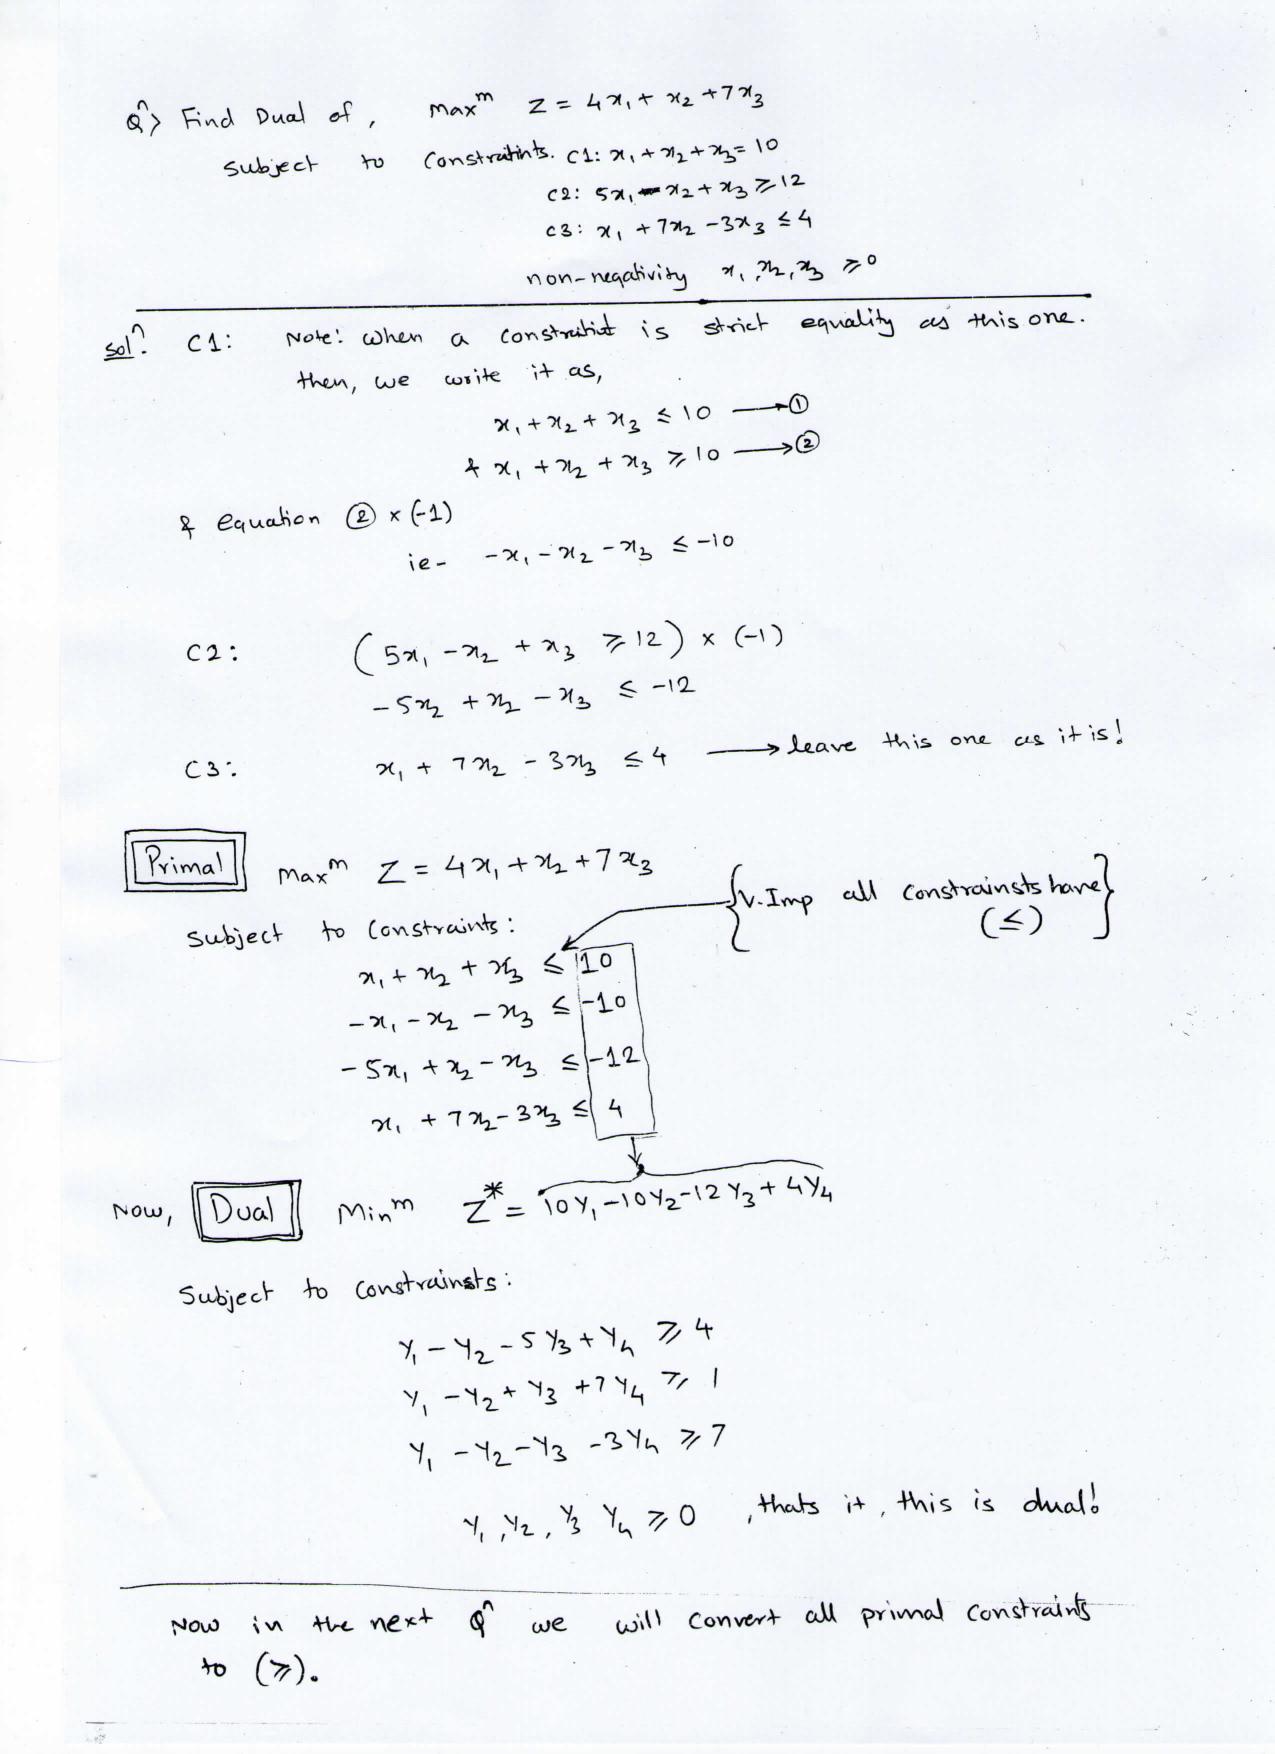 Qⁿ> Find Dual of, Maxᵐ Z = 4x₁ + x₂ + 7x₃
subject to Constratints. C1: x₁ + x₂ + x₃ = 10
C2: 5x₁ - x₂ + x₃ ⩾ 12
C3: x₁ + 7x₂ - 3x₃ ≤ 4
non-negativity x₁, x₂, x₃ ⩾ 0
Solⁿ. C1: Note: When a is strict equality as this one.
then, we write it as,
x₁ + x₂ + x₃ ≤ 10 → ①
& x₁ + x₂ + x₃ ⩾ 10 → ②
& equation ② × (-1)
ie- -x₁ - x₂ - x₃ ≤ -10
C2: (5x₁ - x₂ + x₃ ⩾ 12) × (-1)
-5x₂ + x₂ - x₃ ≤ -12
C3: x₁ + 7x₂ - 3x₃ ≤ 4 → leave this one as it is!
Primal Maxᵐ Z = 4x₁ + x₂ + 7x₃
{V. Imp all Constrainsts have}
(≤)
Subject to Constraints:
x₁ + x₂ + x₃ ≤ 10
-x₁ - x₂ - x₃ ≤ -10
-5x₁ + x₂ - x₃ ≤ -12
x₁ + 7x₂ - 3x₃ ≤ 4
Now, Dual Minᵐ Z* = 10Y₁ - 10Y₂ - 12Y₃ + 4Y₄
Subject to Constrainsts:
Y₁ - Y₂ - 5Y₃ + Y₄ ⩾ 4
Y₁ - Y₂ + Y₃ + 7Y₄ ⩾ 1
Y₁ - Y₂ - Y₃ - 3Y₄ ⩾ 7
Y₁, Y₂, Y₃ Y₄ ⩾ 0 , thats it, this is dual!
Now in the next Qⁿ we will convert all primal constraints
to (⩾).